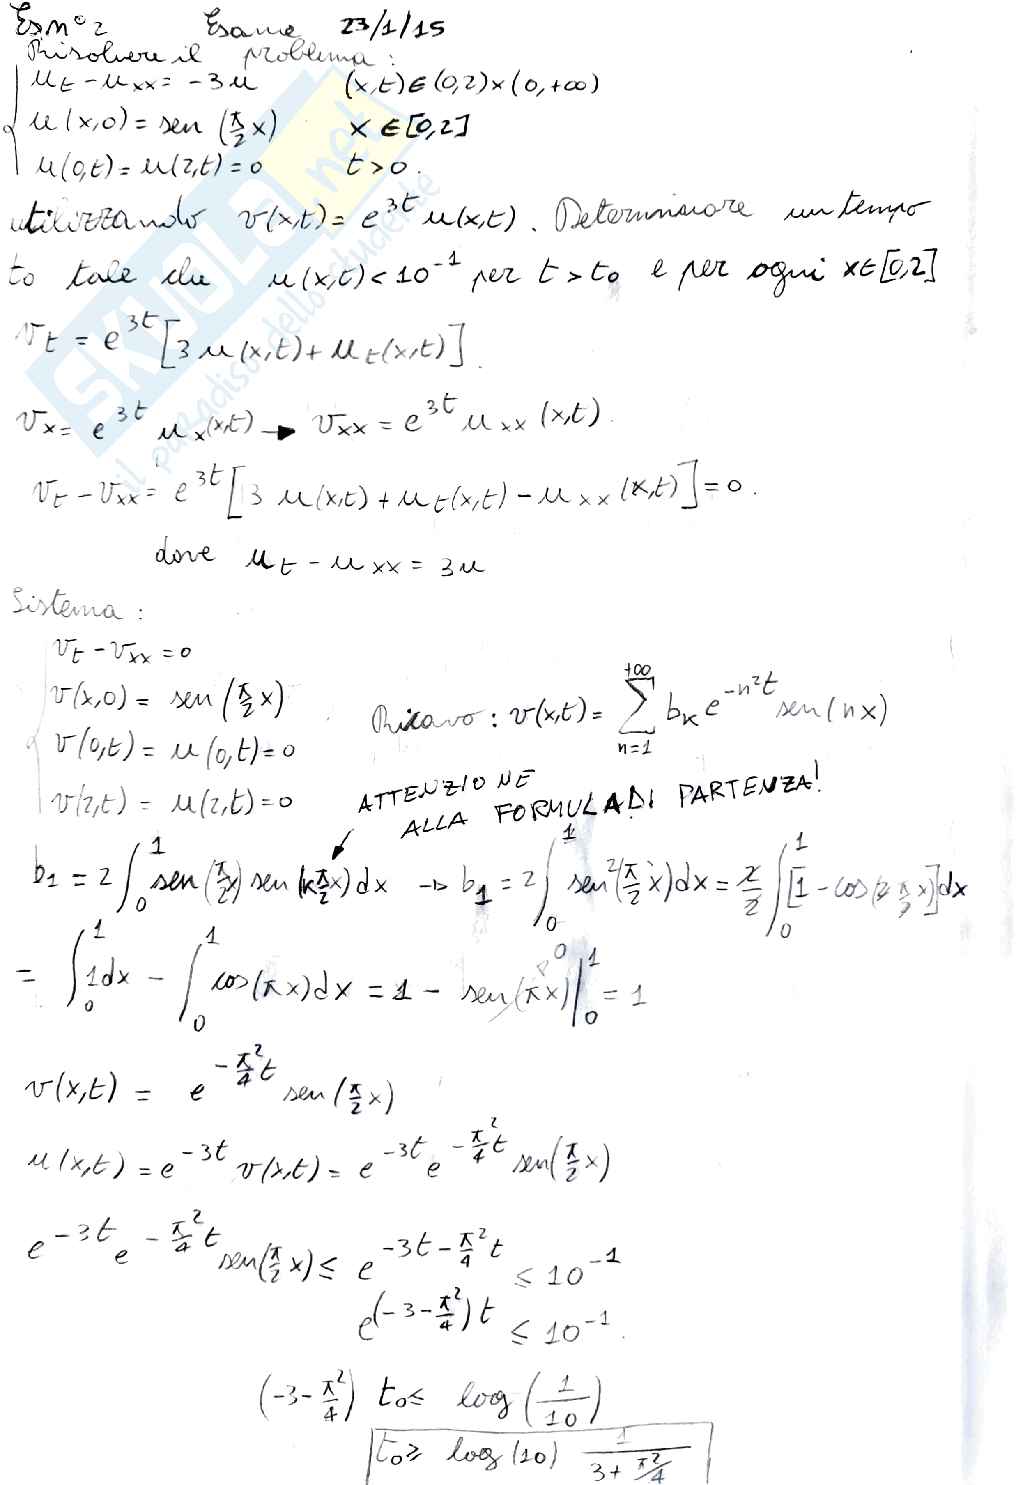 Es n° 2 Esame 23/1/15
Risolvere il problema:
u_t - u_xx = -3u (x,t) ∈ (0,2) × (0,+∞)
u(x,0) = sen(π/2 x) x ∈ [0,2]
u(0,t) = u(2,t) = 0 t > 0.
utilizzando v(x,t) = e^{3t} u(x,t). Determinare un tempo
to tale che u(x,t) < 10^{-1} per t > t_0 e per ogni x ∈ [0,2]
v_t = e^{3t} [3 u(x,t) + u_t(x,t)].
v_x = e^{3t} u_x(x,t) → v_xx = e^{3t} u_xx (x,t).
v_t - v_xx = e^{3t} [3 u(x,t) + u_t(x,t) - u_xx (x,t)] = 0.
dove u_t - u_xx = 3u
Sistema:
v_t - v_xx = 0
v(x,0) = sen(π/2 x)
v(0,t) = u(0,t) = 0
v(2,t) = u(2,t) = 0
Ricavo: v(x,t) = ∑_{n=1}^{+∞} b_k e^{-n²t} sen(nx)
ATTENZIONE
ALLA FORMULA DI PARTENZA!
b_1 = 2 ∫_0^1 sen(π/2 x) sen(k π/2 x) dx → b_1 = 2 ∫_0^1 sen²(π/2 x) dx = 2/2 ∫_0^1 [1 - cos(2 π/2 x)] dx
= ∫_0^1 1 dx - ∫_0^1 cos(πx) dx = 1 - sen(πx) |_0^1 = 1
v(x,t) = e^{-π²/4 t} sen(π/2 x)
u(x,t) = e^{-3t} v(x,t) = e^{-3t} e^{-π²/4 t} sen(π/2 x)
e^{-3t} e^{-π²/4 t} sen(π/2 x) ≤ e^{-3t - π²/4 t} ≤ 10^{-1}
e^{(-3 - π²/4) t} ≤ 10^{-1}.
(-3 - π²/4) t_0 ≤ log(1/10)
t_0 ≥ log(10) 1/(3 + π²/4)
SKUOLA.net
il paradiso dello studente